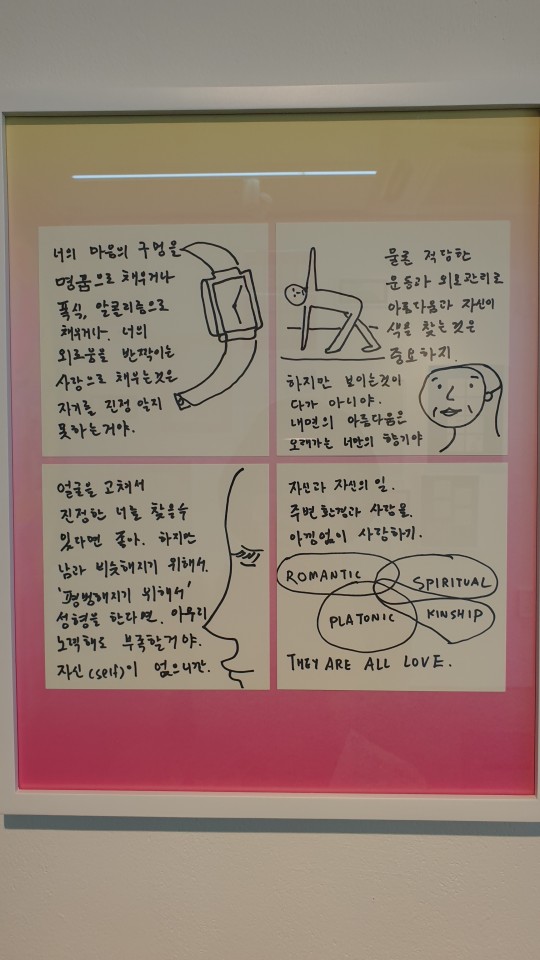 너의 마음의 구멍을
명품으로 채우거나
폭식, 알콜리즘으로
채우거나. 너의
외로움을 반짝이는
사랑으로 채우는것은
자기를 진정 알지
못하는거야.
물론 적당한
운동과 외모관리로
아름다움과 자신의
색을 찾는것은
중요하지.
하지만 보이는것이
다가 아니야.
내면의 아름다움은
오래가는 너만의 향기야
얼굴을 고쳐서
진정한 너를 찾을수
있다면 좋아. 하지만
남과 비슷해지기 위해서.
'평범해지기 위해서'
성형을 한다면. 아무리
노력해도 부족할거야.
자신(self)이 없으니깐.
자신과 자신의 일.
주변환경과 사람을.
아낌없이 사랑하기.
ROMANTIC
SPIRITUAL
PLATONIC
KINSHIP
THEY ARE ALL LOVE.